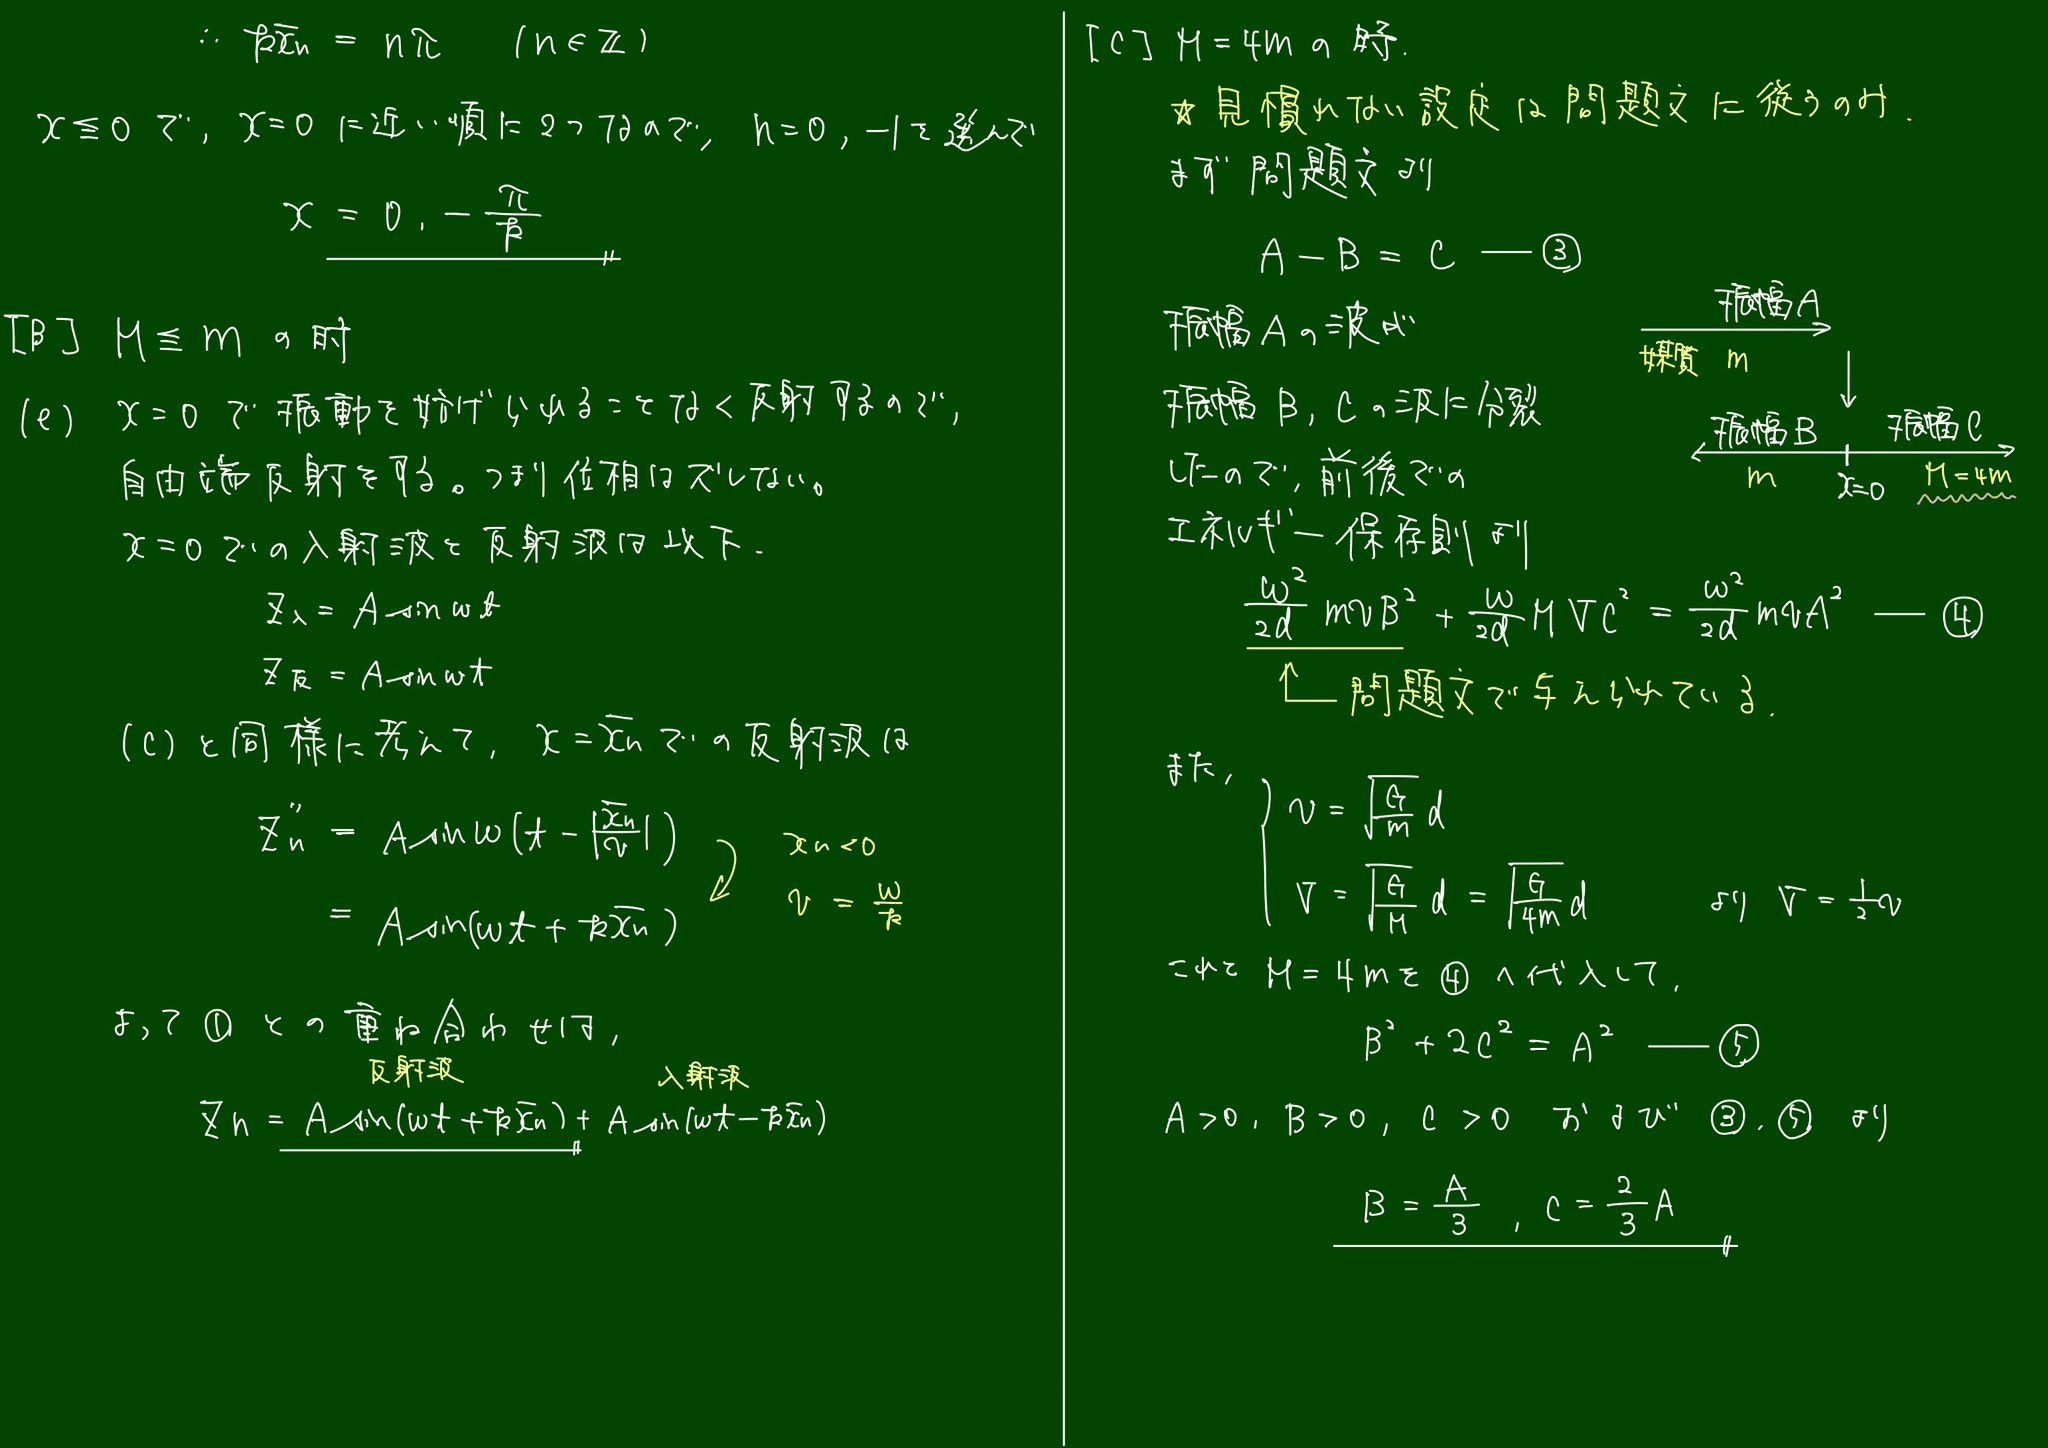 ∴ kx̄n = nπ (n∈ℤ)
x≦0 で, x=0 に近い順に2つなので, n=0, -1を選んで
x = 0, -π/k
[B] M≦m の時
(e) x=0 で振動を妨げられることなく反射するので,
自由端反射をする。つまり位相はズレない。
x=0 での入射波と反射波は以下.
Z入 = A sin ωt
Z反 = A sin ωt
(C)と同様に考えて, x = x̄n での反射波は
Z''n = A sin ω(t - |x̄n/v|)
xn<0
= A sin(ωt + kx̄n)
v = ω/k
よって ① との重ね合わせは,
反射波 入射波
Zn = A sin(ωt + kx̄n) + A sin(ωt - kx̄n)
[C] M = 4m の時.
☆ 見慣れない設定は問題文に従うのみ.
まず問題文より
A - B = C ― ③
振幅Aの波が
振幅B, Cの波に分裂
したので, 前後での
エネルギー保存則より
振幅A
媒質 m
振幅B 振幅C
m x=0 M=4m
ω²/2d mvB² + ω/2d MVC² = ω²/2d mvA² ― ④
問題文で与えられている.
また,
v = √(G/m) d
V = √(G/M) d = √(G/4m) d より V = 1/2 v
これと M = 4m を ④ へ代入して,
B² + 2C² = A² ― ⑤
A>0, B>0, C>0 および ③, ⑤ より
B = A/3 , C = 2/3 A